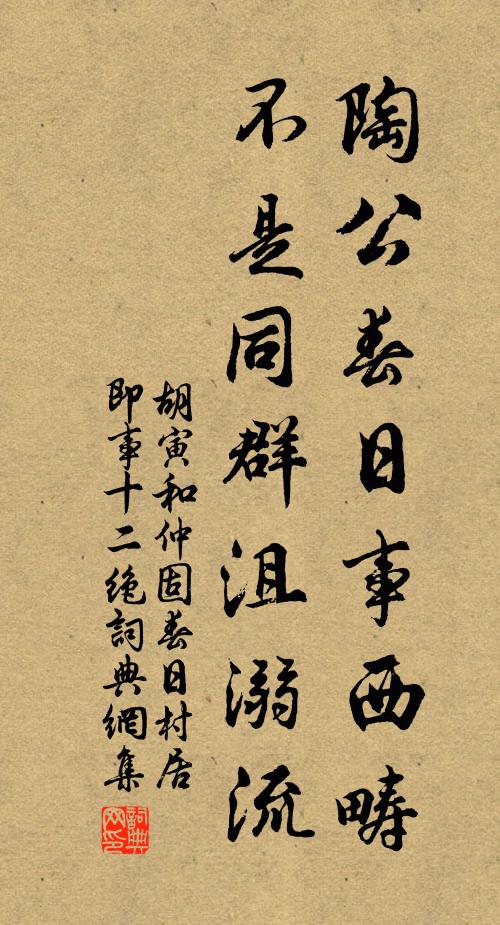 陶公春日事西疇
不是同群沮溺流
胡寅和仲固春日村居
即事十二絶詞典網集
詞典
网印